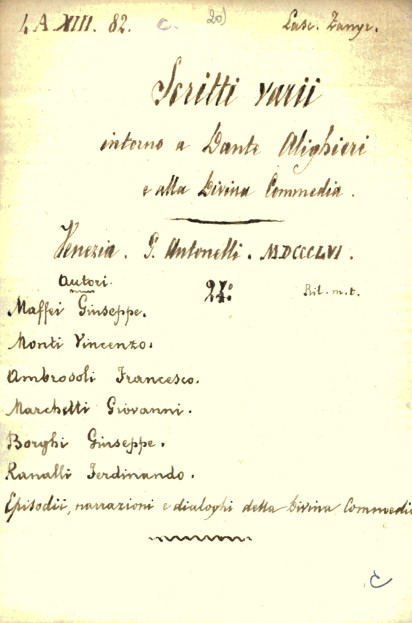 L A XIII. 82. C. 20) Lasc. Zanyr.
Scritti varii
intorno a Dante Alighieri
e alla Divina Commedia.
Venezia. G. Antonelli. MDCCCLVI.
Autori.
24:° Ril. m. t.
Maffei Giuseppe.
Monti Vincenzo.
Ambrosoli Francesco.
Marchetti Giovanni.
Borghi Giuseppe.
Ranalli Ferdinando.
Episodii, narrazioni e dialoghi della Divina Commedia
C